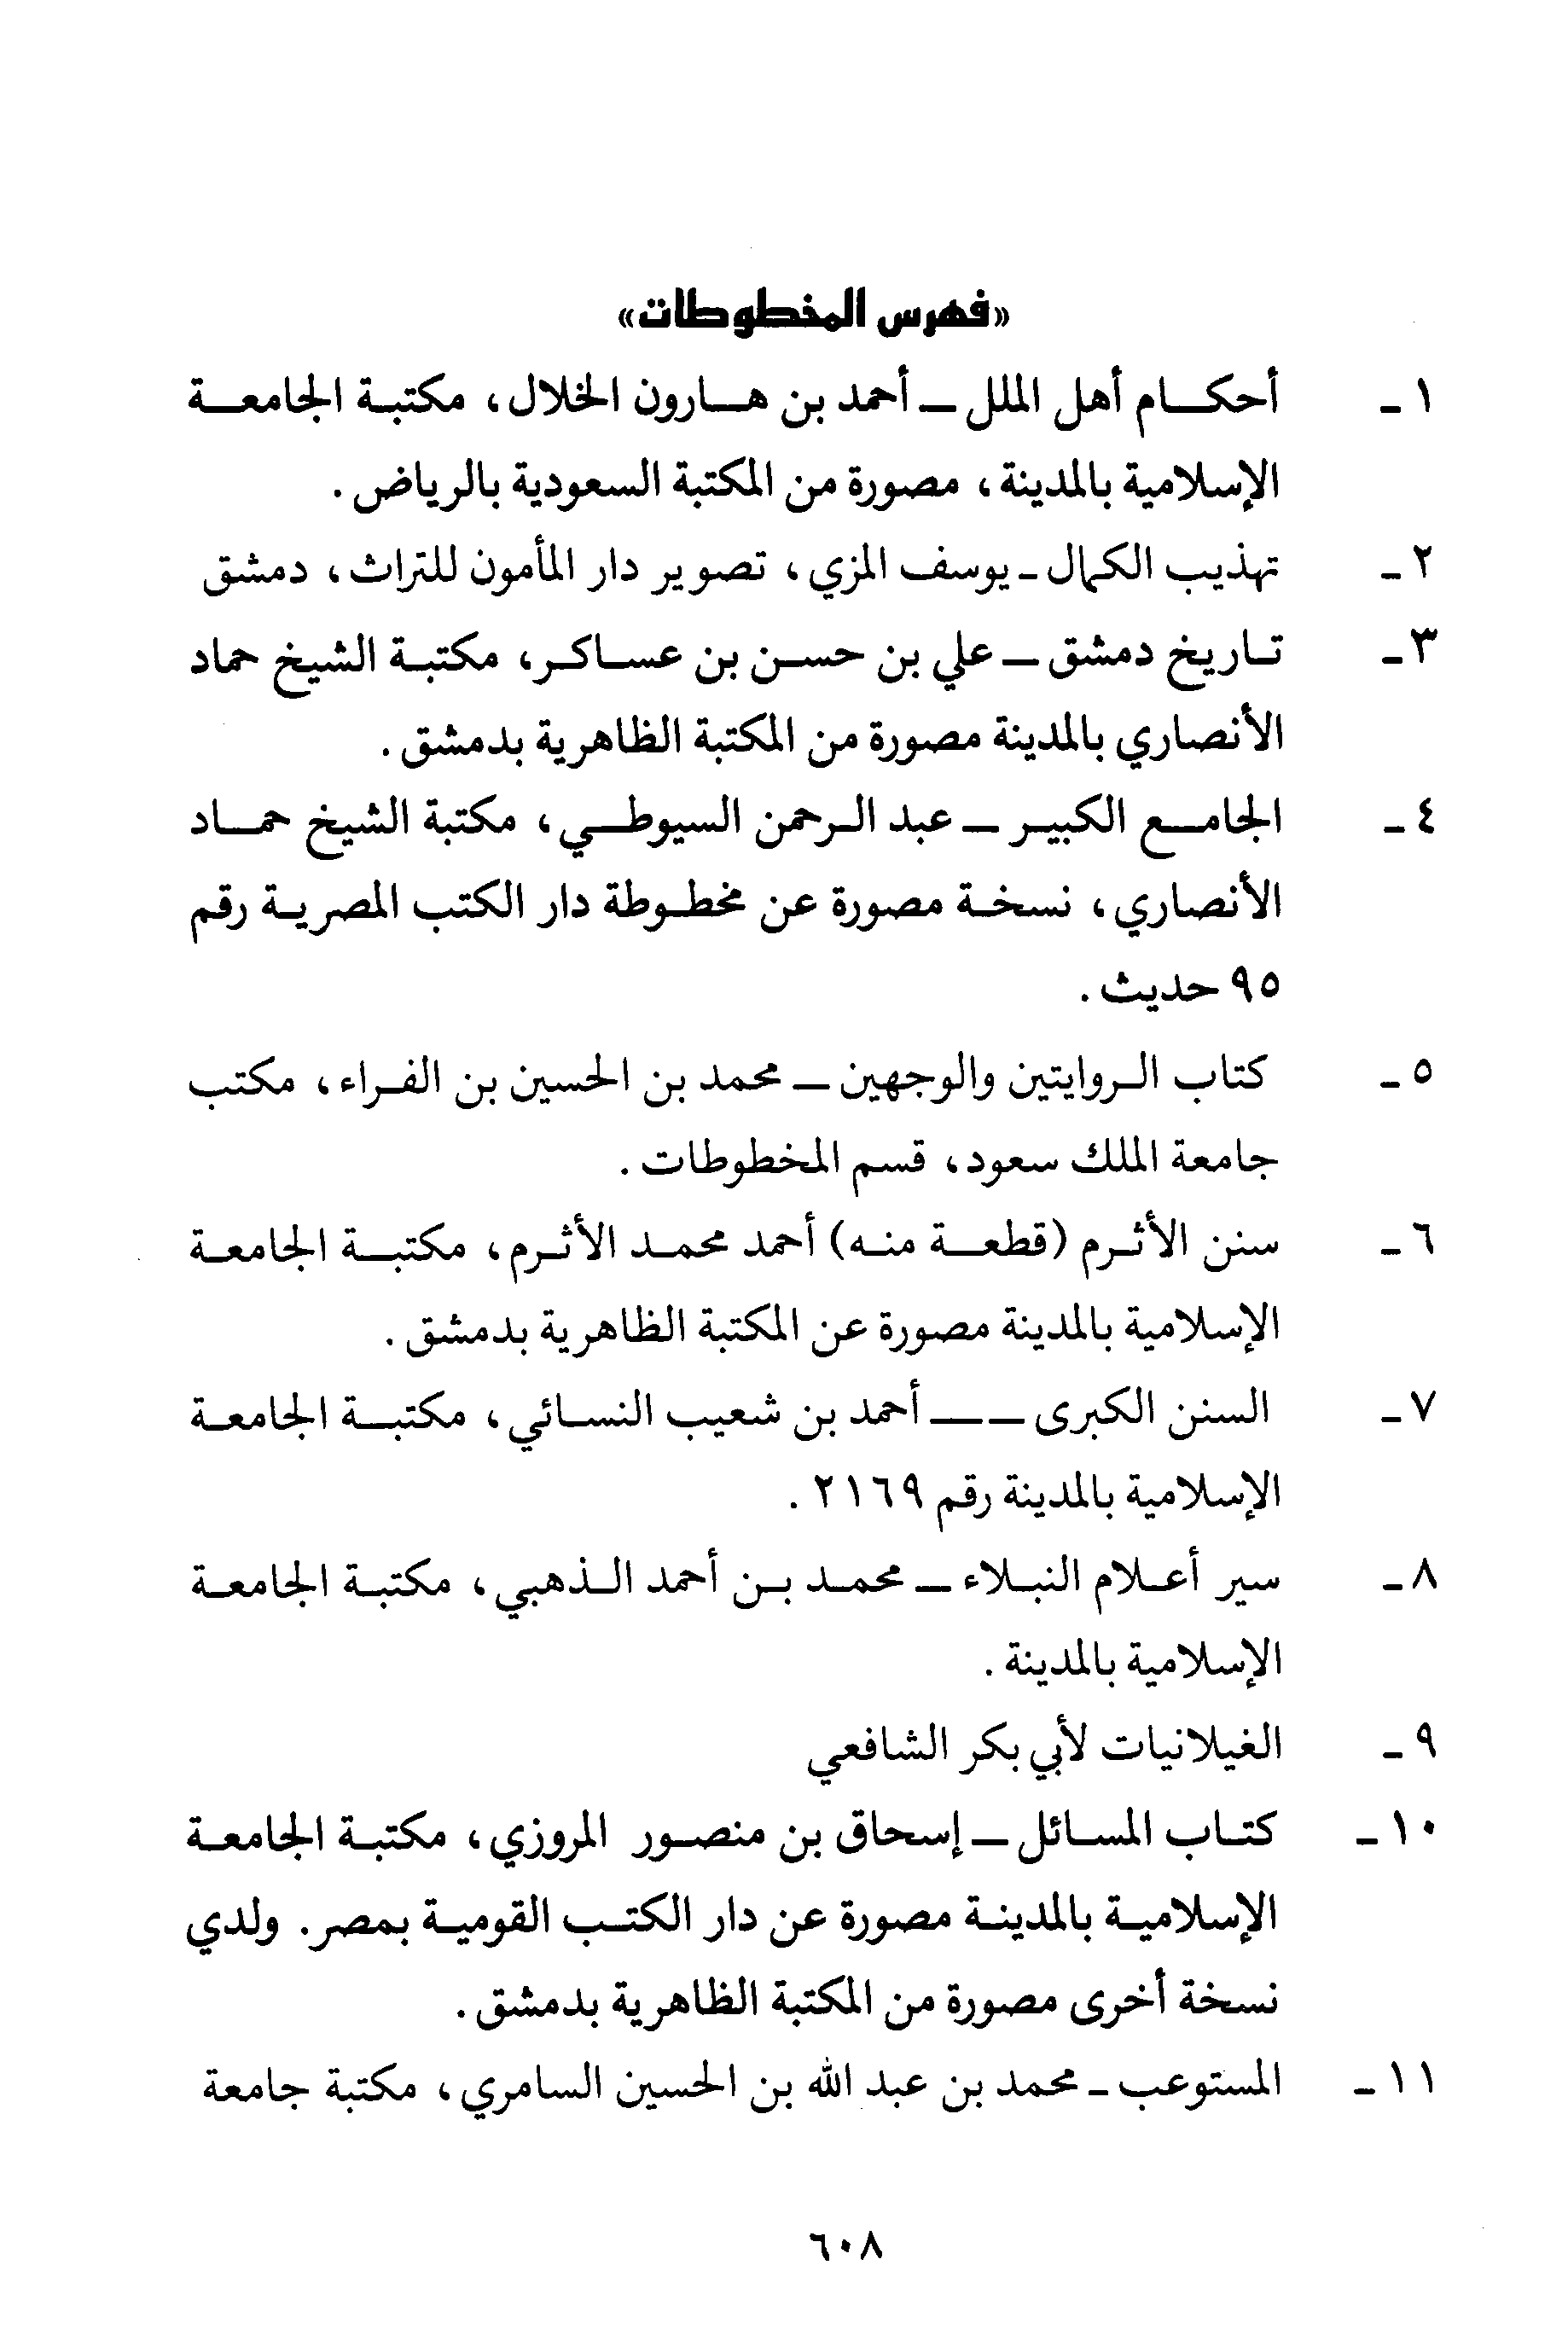 «فهرس المخطوطات»
١ - أحكام أهل الملل - أحمد بن هارون الخلال، مكتبة الجامعة
الإسلامية بالمدينة، مصورة من المكتبة السعودية بالرياض.
٢ - تهذيب الكمال - يوسف المزي، تصوير دار المأمون للتراث، دمشق
٣ - تاريخ دمشق - علي بن حسن بن عساكر، مكتبة الشيخ حماد
الأنصاري بالمدينة مصورة من المكتبة الظاهرية بدمشق.
٤ - الجامع الكبير - عبد الرحمن السيوطي، مكتبة الشيخ حماد
الأنصاري، نسخة مصورة عن مخطوطة دار الكتب المصرية رقم
٩٥ حديث.
٥ - كتاب الروايتين والوجهين - محمد بن الحسين بن الفراء، مكتب
جامعة الملك سعود، قسم المخطوطات.
٦ - سنن الأثرم (قطعة منه) أحمد محمد الأثرم، مكتبة الجامعة
الإسلامية بالمدينة مصورة عن المكتبة الظاهرية بدمشق.
٧ - السنن الكبرى - - أحمد بن شعيب النسائي، مكتبة الجامعة
الإسلامية بالمدينة رقم ٢١٦٩.
٨ - سير أعلام النبلاء - محمد بن أحمد الذهبي، مكتبة الجامعة
الإسلامية بالمدينة.
٩ - الغيلانيات لأبي بكر الشافعي
١٠ - كتاب المسائل - إسحاق بن منصور المروزي، مكتبة الجامعة
الإسلامية بالمدينة مصورة عن دار الكتب القومية بمصر. ولدي
نسخة أخرى مصورة من المكتبة الظاهرية بدمشق.
١١ - المستوعب - محمد بن عبد الله بن الحسين السامري، مكتبة جامعة
٦٠٨